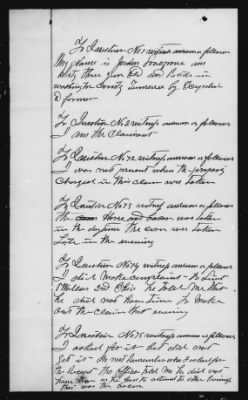 To Question No 1 witness answers as follows
My name is Jordan
thirty three years old and reside in
Washington County Tennessee by Occupation
a farmer
To Question No 2 witness answers as follows
I am the Claimant
To Question No 72 witness answers as follows
I was not present when the property
Charged in this claim was taken
To Question No 73 witness answers as follows
The Horse and bacon was taken
in the daytime the corn was taken
Late in the evening
To Question No 74 witness answers as follows
I did make complaint to Lieut
2nd Ohio he told me that
he did not have time to make
out the claim that evening
To Question No 75 witness answers as follows
I asked for it but did not
get it do not remember who I asked for
the Receipt the officer told me he did not
have time as he had to attend to other business
This was the bacon